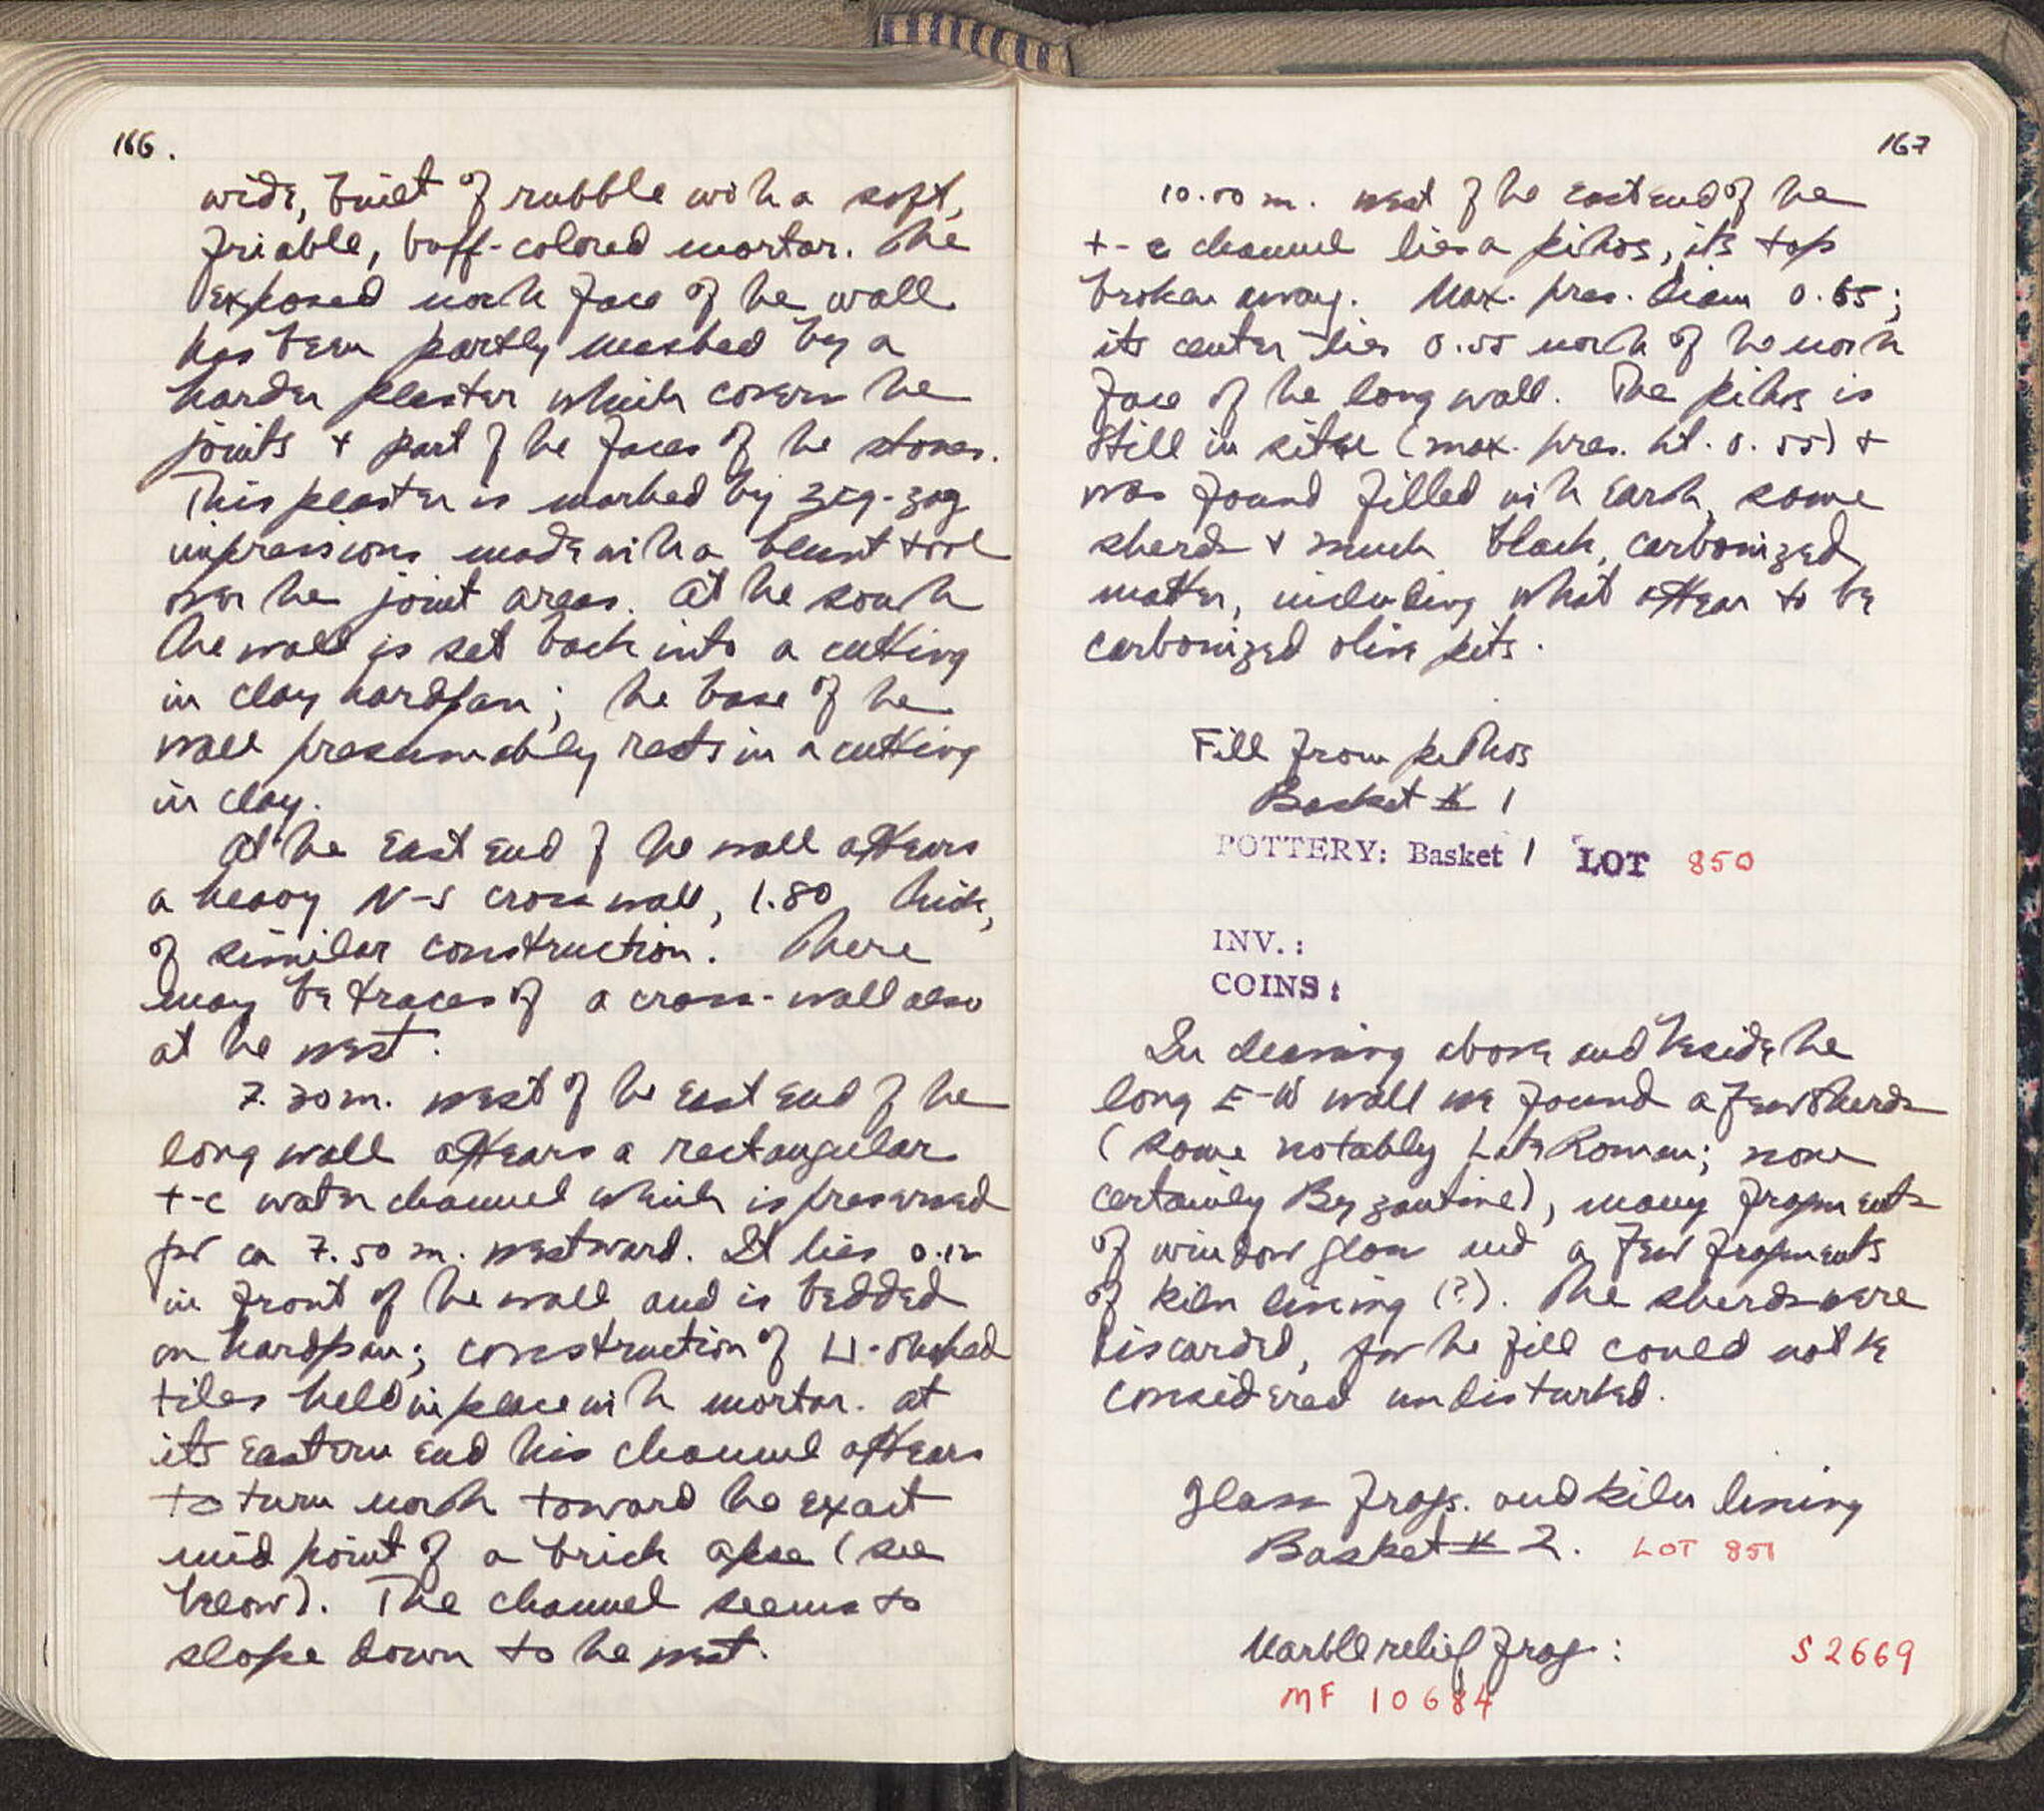 166.
wide, built of rubble with a soft,
friable, buff-colored mortar. The
exposed north face of the wall
has been partly meshed by a
harder plaster which covers the
joints + part of the faces of the stones.
This plaster is marked by zig-zag
impressions made with a blunt tool
over the joint areas. At the south
the wall is set back into a cutting
in clay hardpan; the base of the
wall presumably rests in a cutting
in clay.
At the east end of the wall appears
a heavy N-S cross wall, 1.80 thick,
of similar construction. There
may be traces of a cross-wall also
at the west.
7.30 m. west of the east end of the
long wall appears a rectangular
t-c water channel which is preserved
for ca 7.50 m. westward. It lies 0.12
in front of the wall and is bedded
on hardpan; construction of ⊔-shaped
tiles held in place with mortar. At
its eastern end this channel appears
to turn north toward the exact
mid point of a brick apse (see
below). The channel seems to
slope down to the west.
167
10.50 m. west of the east end of the
t-c channel lies a pithos, its top
broken away. Max. pres. diam 0.65;
its center lies 0.55 north of the north
face of the long wall. The pithos is
still in situ (max. pres. ht. 0.55) +
was found filled with earth, some
sherds + much black, carbonized
matter, including what appear to be
carbonized olive pits.
Fill from pithos
Basket # 1
POTTERY: Basket 1 LOT 850
INV.:
COINS:
In cleaning above and beside the
long E-W wall we found a few sherds
(some notably Late Roman; none
certainly Byzantine), many fragments
of window glass and a few fragments
of kiln lining (?). The sherds were
discarded, for the fill could not be
considered undisturbed.
Glass frags. and kiln lining
Basket # 2. LOT 851
Marble relief frag: S 2669
MF 10684